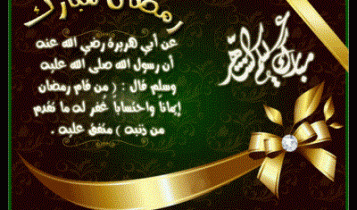 رمضان مبارك
عن أبي هريرة رضي الله عنه
أن رسول الله صلى الله عليه
وسلم قال : ( من قام رمضان
إيماناً واحتساباً غُفر له ما تقدم
من ذنبه ) متفق عليه .
مبارك عليكم الشهر